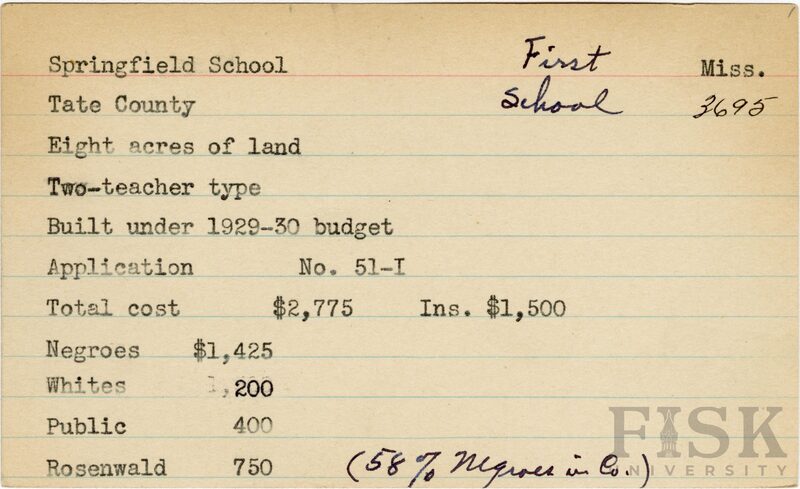 Springfield School First Miss.
Tate County School 3695
Eight acres of land
Two-teacher type
Built under 1929-30 budget
Application No. 51-I
Total cost $2,775 Ins. $1,500
Negroes $1,425
Whites 200
Public 400
Rosenwald 750 (58% Negroes in Co.)
FISK
UNIVERSITY